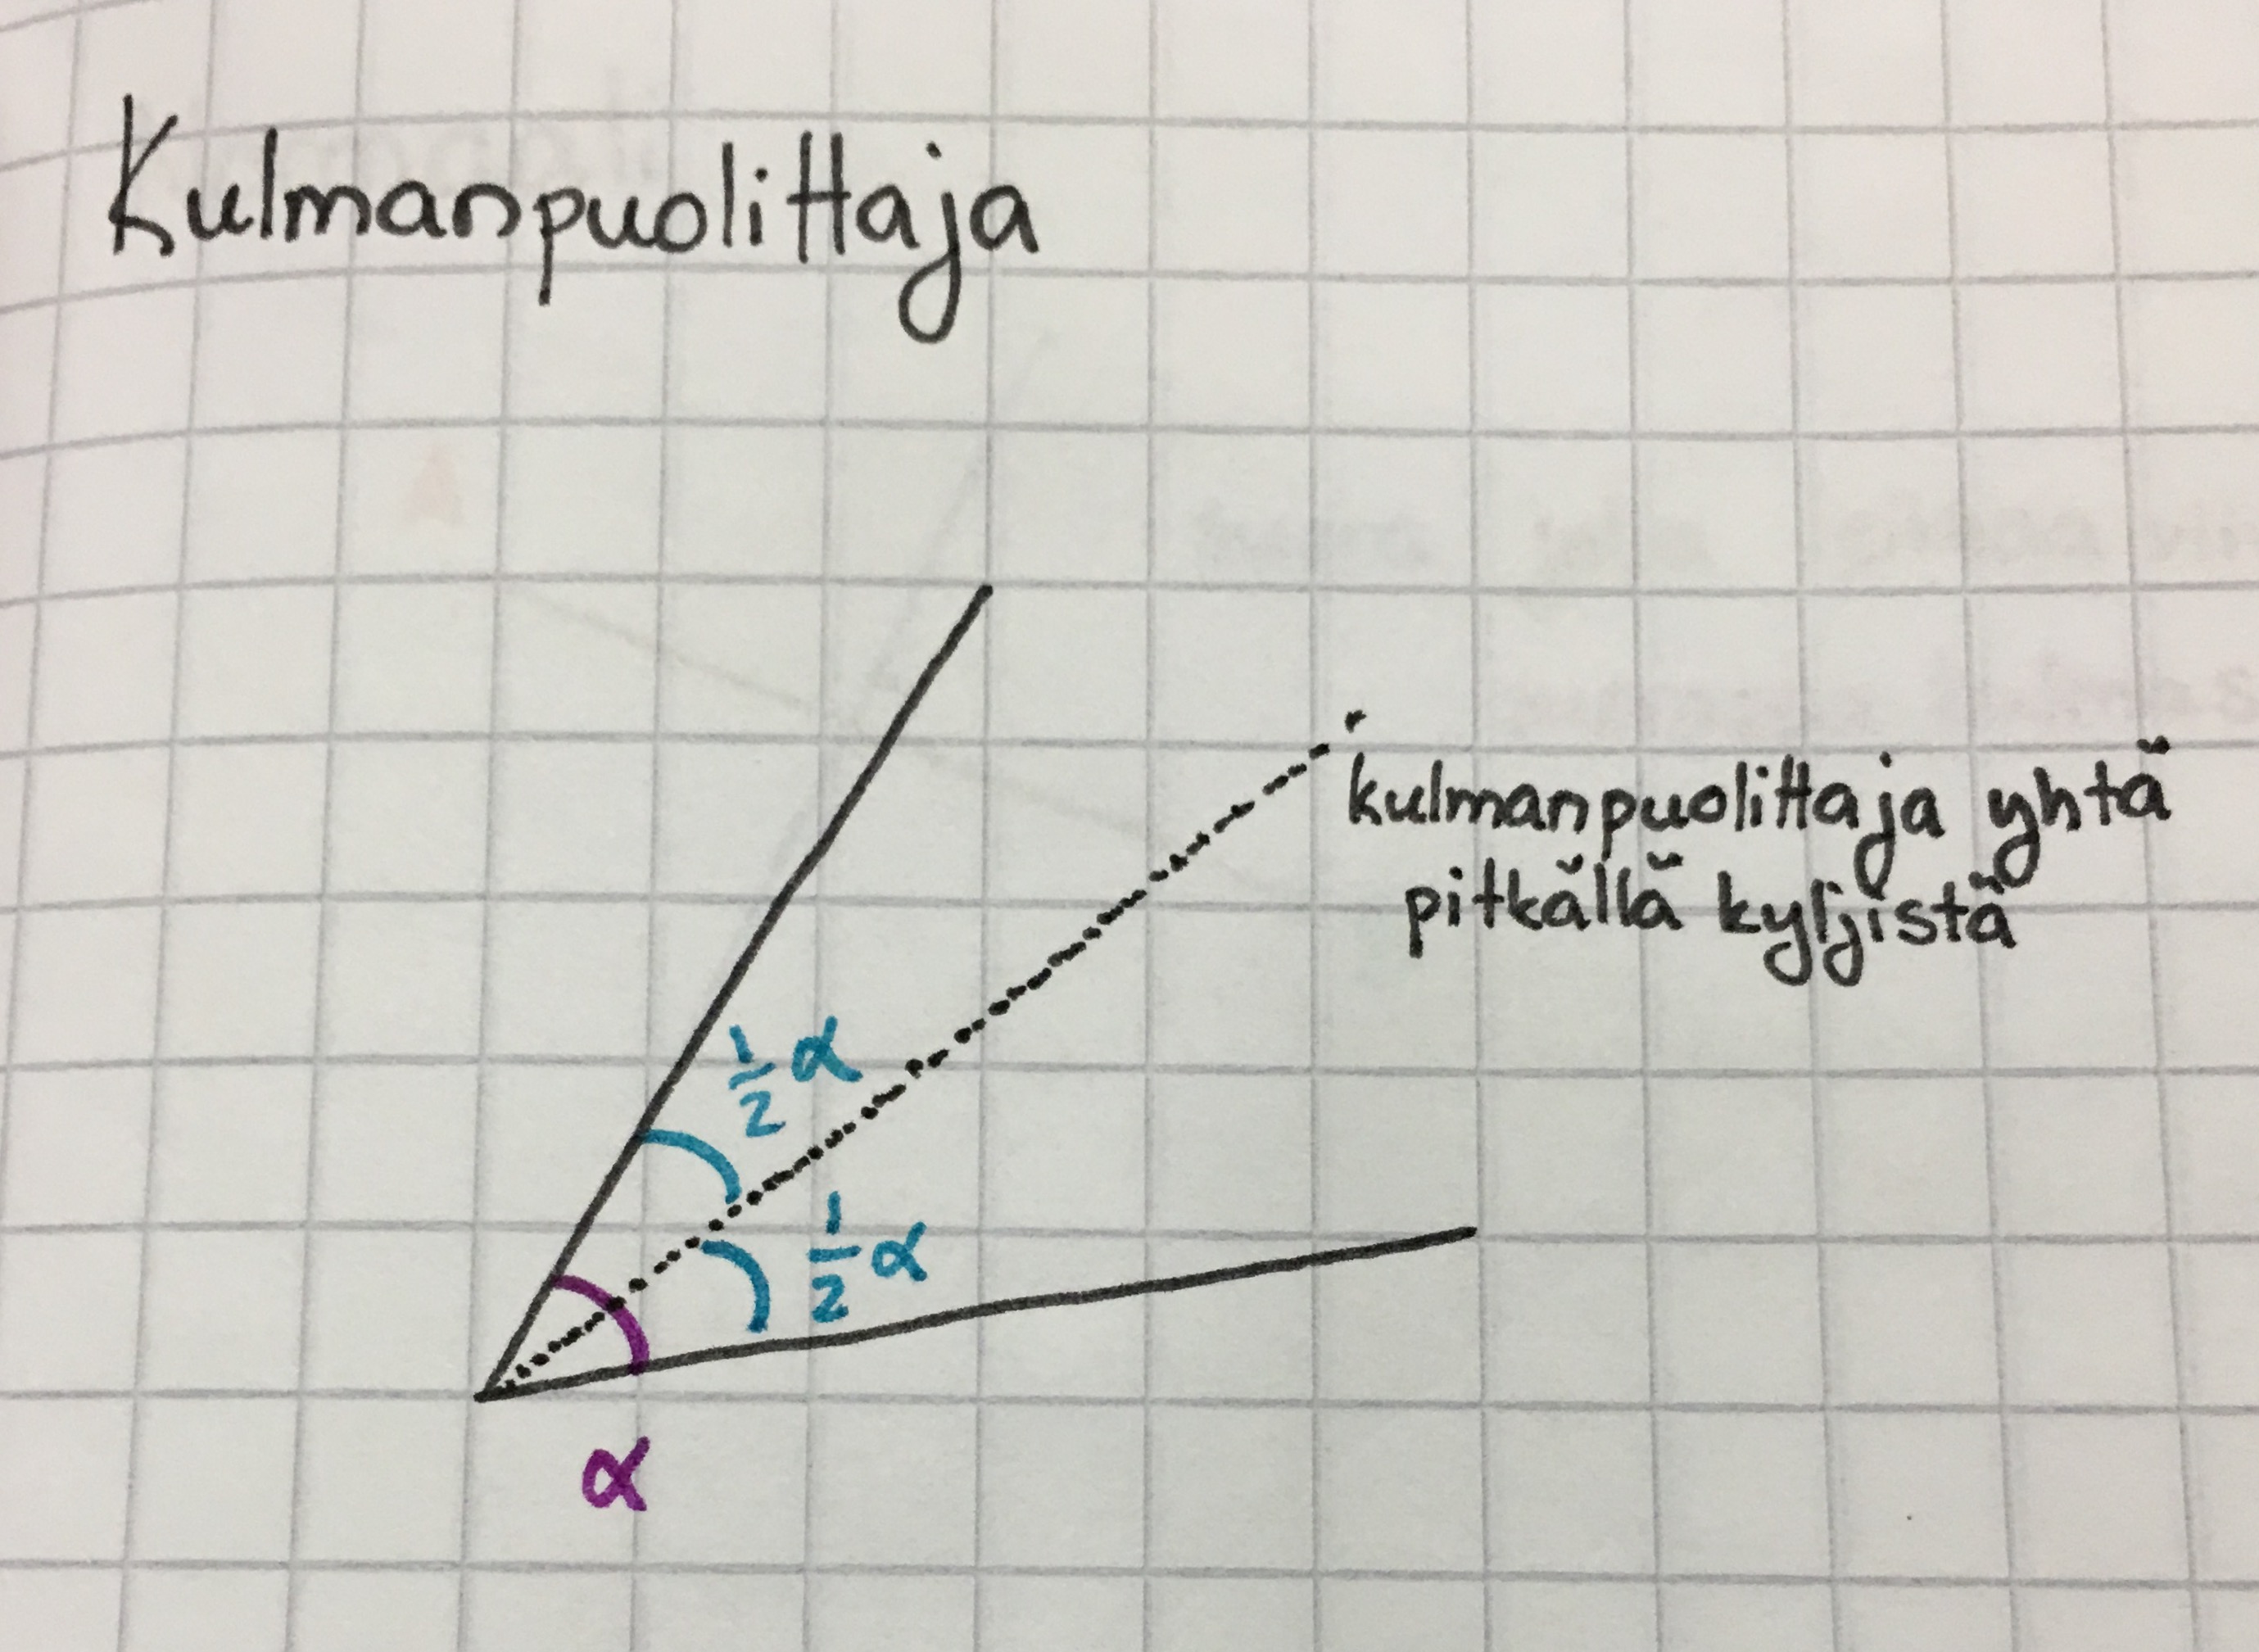 Kulmanpuolittaja
kulmanpuolittaja yhtä
pitkällä kyljistä
½α
½α
α